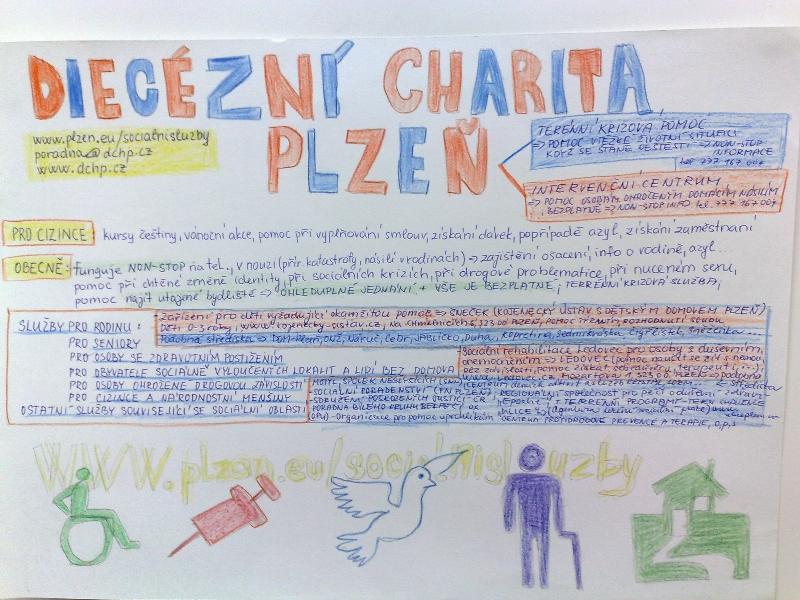 DIECÉZNÍ CHARITA
PLZEŇ
www.plzen.eu/socialnisluzby
poradna@dchp.cz
www.dchp.cz
TERÉNNÍ KRIZOVÁ POMOC
⇒ POMOC V TĚŽKÉ ŽIVOTNÍ SITUACI
KDYŽ SE STANE NEŠTĚSTÍ ⇒ NON-STOP
INFORMACE
tel 777 167 004
INTERVENČNÍ CENTRUM
⇒ POMOC OSOBÁM OHROŽENÝM DOMÁCÍM NÁSILÍM
BEZPLATNĚ ⇒ NON-STOP INFO tel. 777 167 004
PRO CIZINCE: kursy češtiny, vánoční akce, pomoc při vyplňování smluv, získání dávek, popřípadě azyl, získání zaměstnání
OBECNĚ: funguje NON-STOP na tel., v nouzi (přír. katastrofy, násilí v rodinách) ⇒ zajištění ošacení, info o rodině, azyl...
pomoc při chtěné změně identity, při sociálních krizích, při drogové problematice, při nuceném sexu,
pomoc najít utajené bydliště ⇒ OHLEDUPLNÉ JEDNÁNÍ + VŠE JE BEZPLATNÉ, TERÉNNÍ KRIZOVÁ SLUŽBA,
SLUŽBY PRO RODINU:
Zařízení pro děti vyžadující okamžitou pomoc ⇒ ŠNEČEK (KOJENECKÝ ÚSTAV S DĚTSKÝM DOMOVEM PLZEŇ)
Děti 0-3 roky, NA CHMELNICÍCH 6, 323 00 PLZEŇ, POMOC
Podobná střediska ⇒ DOM-PLZEŇ, Náruč, Cedr, JABLÍČKO, Duha, Kopretina, Sedmikráska, Čtyřlístek, Sněženka...
PRO SENIORY
PRO OSOBY SE ZDRAVOTNÍM POSTIŽENÍM
Sociální rehabilitace Ledovec pro osoby s duševním
onemocněním ⇒ LEDOVEC (pomoc naučit se žít s nemocí
PRO OBYVATELE SOCIÁLNĚ VYLOUČENÝCH LOKALIT A LIDÍ BEZ DOMOVA
PRO OSOBY OHROŽENÉ DROGOVOU ZÁVISLOSTÍ
PRO CIZINCE A NÁRODNOSTNÍ MENŠINY
SOCIÁLNÍ PORADENSTVÍ
OSTATNÍ SLUŽBY SOUVISEJÍCÍ SE SOCIÁLNÍ OBLASTÍ
PORADNA BÍLÉHO KRUHU BEZPEČÍ
Organizace pro pomoc uprchlíkům
CENTRUM PROTIDROGOVÉ PREVENCE A TERAPIE, o.p.s
WWW.plzen.eu/socialnislouzby